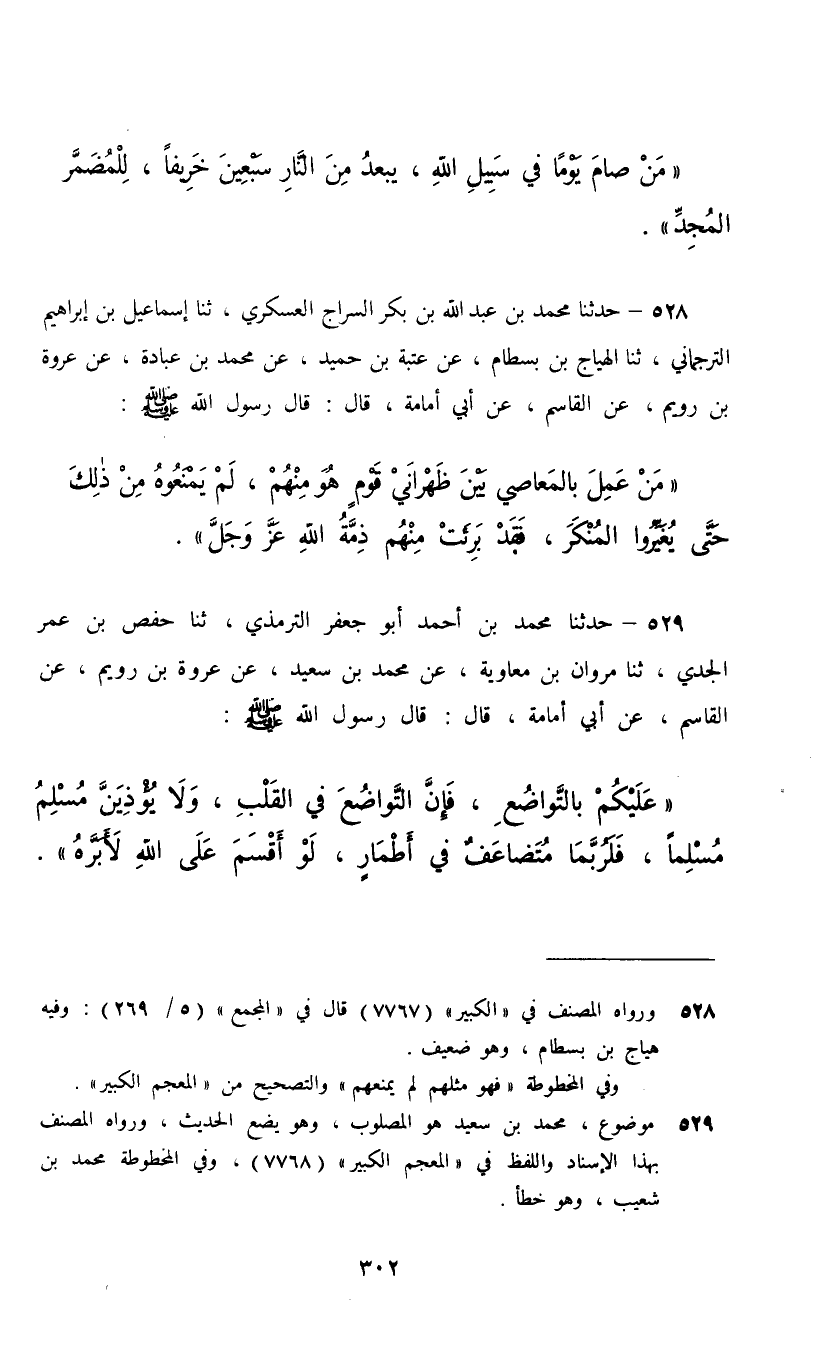 « مَنْ صامَ يَوْمًا في سَبِيلِ اللهِ ، يبعدُ مِنَ النَّارِ سَبْعِينَ خَرِيفاً ، لِلْمُضَمَّر
المُجِدِّ» .
٥٢٨ – حدثنا محمد بن عبد الله بن بكر السراج العسكري ، ثنا إسماعيل بن إبراهيم
الترجماني ، ثنا الهياج بن بسطام ، عن عتبة بن حميد ، عن محمد بن عبادة ، عن عروة
بن رويم ، عن القاسم ، عن أبي أمامة ، قال : قال رسول الله ﷺ :
« مَنْ عَمِلَ بالمَعاصي بَيْنَ ظَهْرانَيْ قَوْمٍ هُوَ مِنْهُمْ ، لَمْ يَمْنَعُوهُ مِنْ ذٰلِكَ
حَتَّى يُغَيِّرُوا المُنْكَرَ ، فَقَدْ بَرِئَتْ مِنْهُم ذِمَّةُ اللهِ عَزَّ وَجَلَّ» .
٥٢٩ – حدثنا محمد بن أحمد أبو جعفر الترمذي ، ثنا حفص بن عمر
الجدي ، ثنا مروان بن معاوية ، عن محمد بن سعيد ، عن عروة بن رويم ، عن
القاسم ، عن أبي أمامة ، قال : قال رسول الله ﷺ :
« عَلَيْكُمْ بالتَّواضُعِ ، فَإِنَّ التَّواضُعَ في القَلْبِ ، وَلَا يُؤْذِيَنَّ مُسْلِمُ
مُسْلِماً ، فَلَرُبَّمَا مُتَضاعَفٌ في أَطْمَارٍ ، لَوْ أَقْسَمَ عَلَى اللهِ لَأَبَرَّهُ» .
٥٢٨ ورواه المصنف في «الكبير» (٧٧٦٧) قال في «المجمع» (٥ / ٢٦٩) : وفيه
هياج بن بسطام ، وهو ضعيف .
وفي المخطوطة «فهو مثلهم لم يمنعهم» والتصحيح من «المعجم الكبير» .
٥٢٩ موضوع ، محمد بن سعيد هو المصلوب ، وهو يضع الحديث ، ورواه المصنف
بهذا الإسناد واللفظ في «المعجم الكبير» (٧٧٦٨) ، وفي المخطوطة محمد بن
شعيب ، وهو خطأ .
٣٠٢